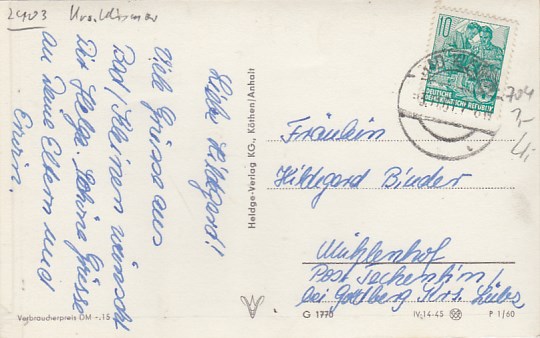 2403 Krs. Wismar
Liebe Hildegard!
Viele Grüsse aus
Bad Kleinen wünscht
Dir Helga. Schöne Grüsse
an Deine Eltern und
Erwin.
Verbraucherpreis DM -.15
Heldge-Verlag KG., Köthen/Anhalt
10
DEUTSCHE
DEMOKRATISCHE REPUBLIK
Fräulein
Hildegard Binder
Mühlenhof
Post Techentin/
bei Goldberg Krs. Lübz
G 1770
IV-14-45
P 1/60